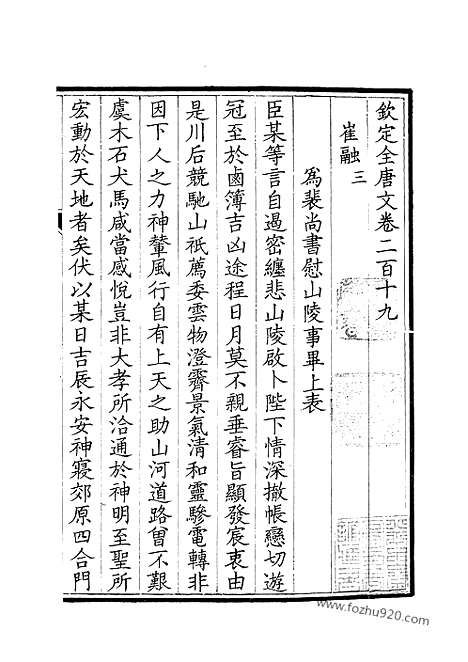 欽定全唐文卷二百十九
崔融三
為裴尚書慰山陵事畢上表
臣某等言自遏密纏悲山陵啟卜陛下情深撤帳戀切遊
冠至於鹵簿吉凶途程日月莫不親垂睿旨顯發宸衷由
是川后競馳山祇薦委雲物澄霽景氣清和靈驂電轉非
因下人之力神輦風行自有上天之助山河道路曾不艱
虞木石犬馬咸當感悅豈非大孝所洽通於神明至聖所
宏動於天地者矣伏以某日吉辰永安神寢郊原四合門
www.fozhu920.com